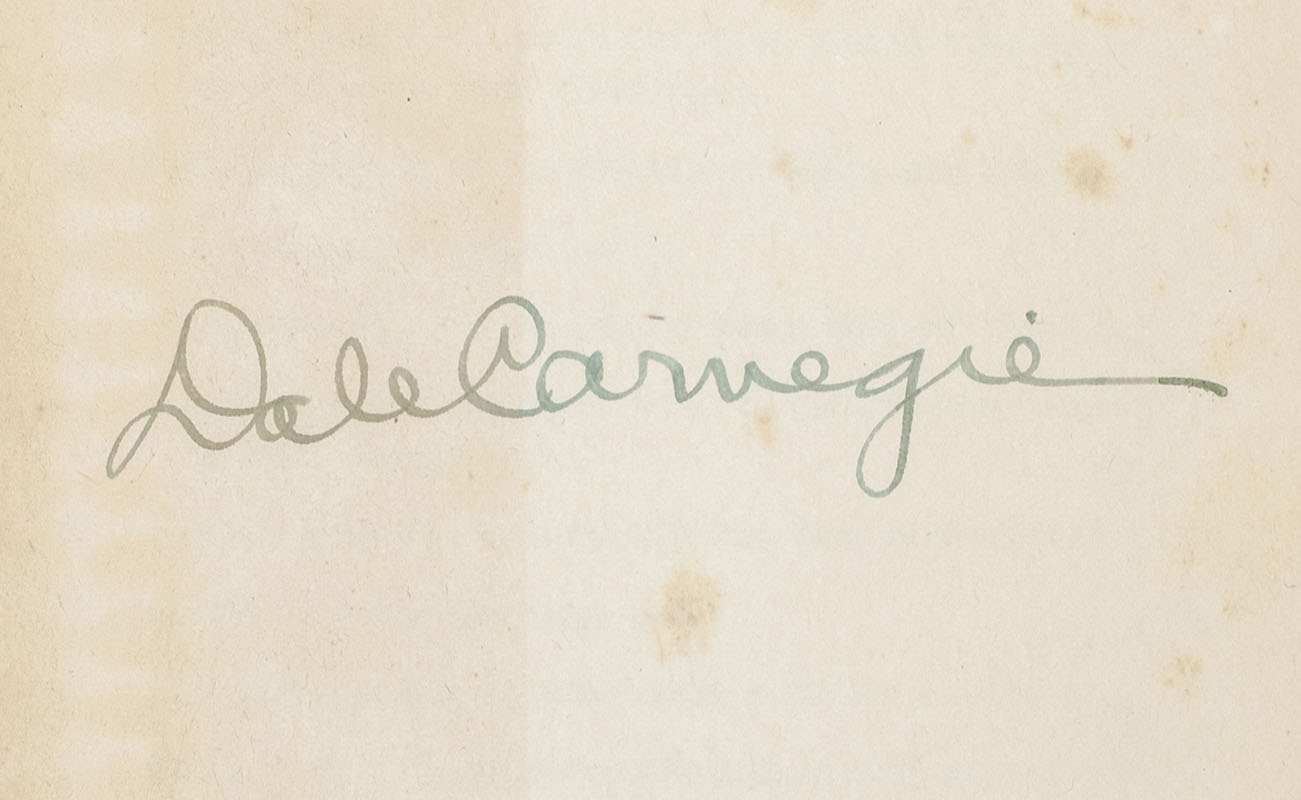 Dale Carnegie